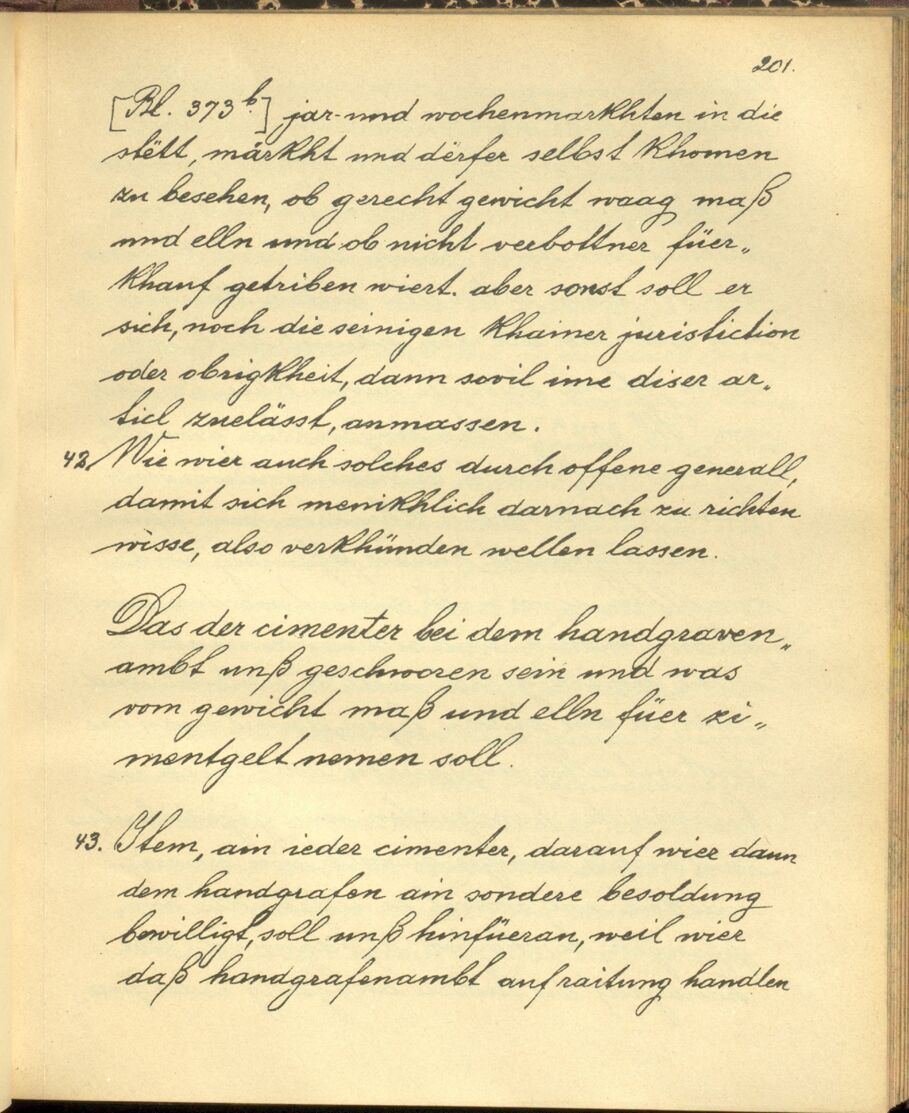 201.
[Bl. 373 b] jar- und wochenmarkhten in die
stëtt, märkht und dërfer selbst khomen
zu besehen, ob gerecht gewicht waag maß
und elln und ob nicht verbottner füer„
khauf getriben wiert. aber sonst soll er
sich, noch die seinigen khainer juristiction
oder obrigkheit, dann sovil ime diser ar„
ticl zuelässt, anmassen.
42. Wie wier auch solches durch offene generall,
damit sich menikhlich darnach zu richten
wisse, also verkhünden wellen lassen.
Das der cimenter bei dem handgraven„
ambt unß geschworen sein und was
vom gewicht maß und elln füer zi„
mentgelt nemen soll.
43. Item, ain ieder cimenter, darauf wier dann
dem handgrafen ain sondere besoldung
bewilligt, soll unß hinfüeran, weil wier
daß handgrafenambt auf raitung handlen